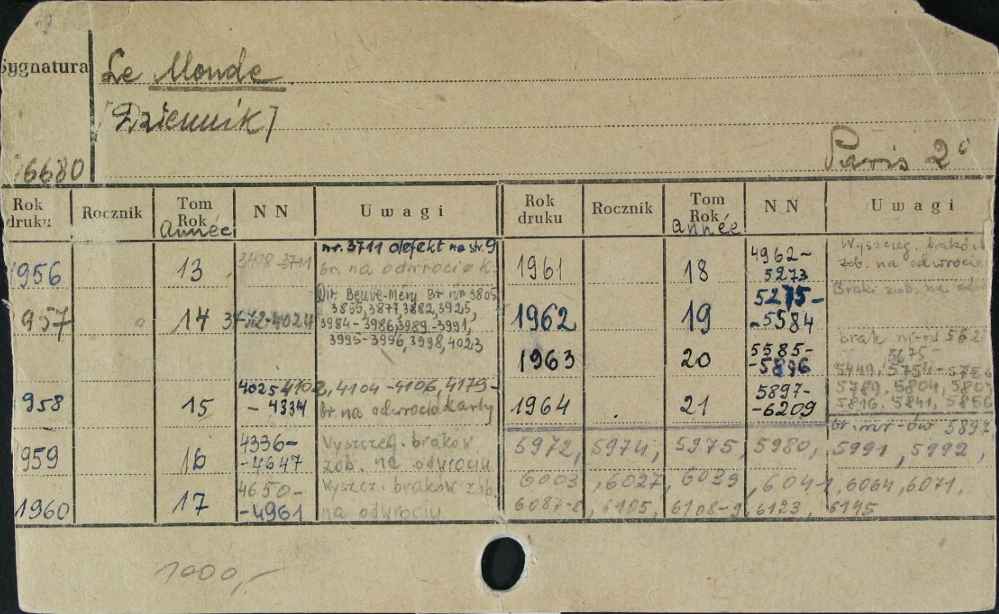 Sygnatura
Le Monde
[Dziennik]
6680
Paris 2e
Rok druku Rocznik Tom Rok année NN Uwagi Rok druku Rocznik Tom Rok année NN Uwagi
1956 13 3408-3711 nr. 3711 defekt na str. 9
br. na odwrocie k.
957 14 3712-4024 Dir. Beuve-Méry Br nr 3805,
3855, 3877, 3882, 3925,
3984-3986, 3989-3991,
3995-3996, 3998, 4023
958 15 4025 - 4334 4102, 4104-4106, 4175-
br. na odwrocie karty
959 16 4336-
-4647 Wyszczeg. braków
zob. na odwrociu
1960 17 4650-
-4961 Wyszcz. braków zob.
na odwrociu
1961 18 4962-
5273 Wyszczeg. braków
zob. na odwrociu
1962 19 5275-
-5584 Braki zob. na
1963 20 5585-
-5896 brak nr-ów 562
5675-
5449, 5754-5756
5789, 5804, 580
5816, 5841, 5856
1964 21 5897-
-6209 br. nur-ów 5897
5972, 5974, 5975, 5980, 5991, 5992,
6003, 6027, 6039, 6041, 6064, 6071,
6087-8, 6105, 6108-9, 6123, 6145
1000,-